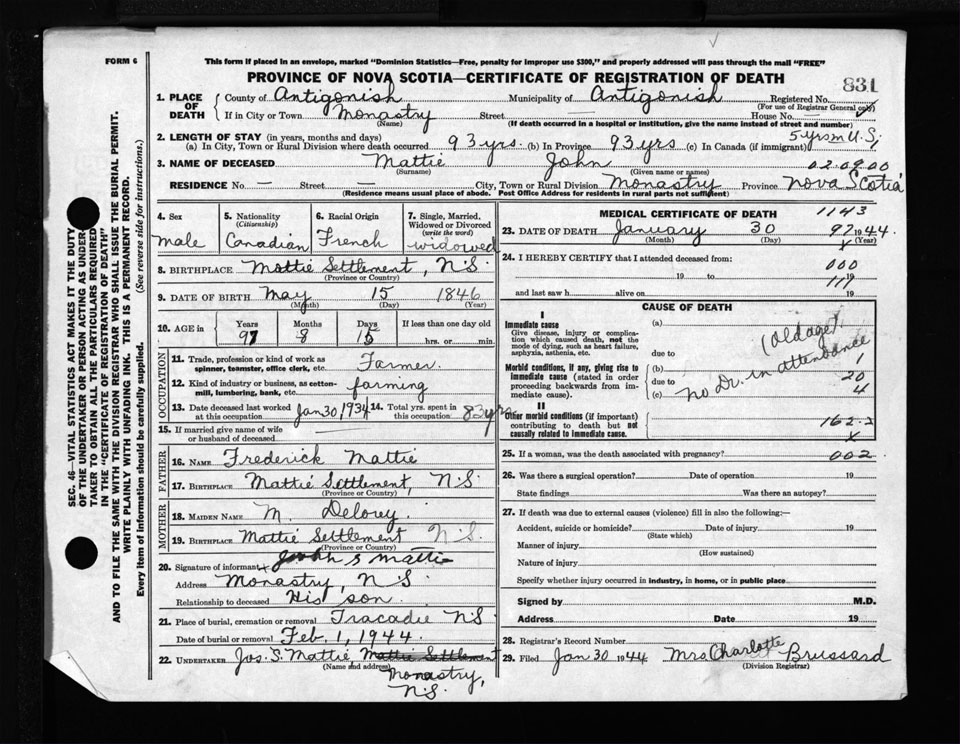 FORM 6
This form if placed in an envelope, marked "Dominion Statistics—Free, penalty for improper use $300," and properly addressed will pass through the mail "FREE"
PROVINCE OF NOVA SCOTIA—CERTIFICATE OF REGISTRATION OF DEATH
831
1. PLACE OF DEATH { County of Antigonish Municipality of Antigonish Registered No.
(For use of Registrar General only)
If in City or Town Monastry Street House No. —
(Name) (If death occurred in a hospital or institution, give the name instead of street and number)
2. LENGTH OF STAY (in years, months and days) 5 yrs in U.S.
(a) In City, Town or Rural Division where death occurred 93 yrs. (b) In Province 93 yrs (c) In Canada (if immigrant)
3. NAME OF DECEASED Mattie John 02.09.00
(Surname) (Given name or names)
RESIDENCE No — Street — City, Town or Rural Division Monastry Province Nova Scotia
(Residence means usual place of abode. Post Office Address for residents in rural parts not sufficient)
4. Sex
male
5. Nationality
(Citizenship)
Canadian
6. Racial Origin
French
7. Single, Married, Widowed or Divorced
(write the word)
widowed
8. BIRTHPLACE Mattie Settlement, N.S.
(Province or Country)
9. DATE OF BIRTH May 15 1846
(Month) (Day) (Year)
10. AGE in { Years Months Days If less than one day old
97 8 15 hrs. or min.
OCCUPATION
11. Trade, profession or kind of work as spinner, teamster, office clerk, etc. Farmer.
12. Kind of industry or business, as cotton-mill, lumbering, bank, etc. farming
13. Date deceased last worked at this occupation Jan 30 1934 14. Total yrs. spent in this occupation 83 yrs
15. If married give name of wife or husband of deceased
FATHER
16. NAME Frederick Mattie
17. BIRTHPLACE Mattie Settlement, N.S.
(Province or Country)
MOTHER
18. MAIDEN NAME M. Delorey
19. BIRTHPLACE Mattie Settlement N.S.
(Province or Country)
20. Signature of informant x Joseph S Mattie
Address Monastry, N.S.
Relationship to deceased His son
21. Place of burial, cremation or removal Tracadie N S
Date of burial or removal Feb. 1, 1944.
22. UNDERTAKER Jos. S. Mattie Mattie Settlement
(Name and address)
Monastry,
N.S.
MEDICAL CERTIFICATE OF DEATH 1143
23. DATE OF DEATH January 30 97 1944
(Month) (Day) (Year)
24. I HEREBY CERTIFY that I attended deceased from:
000
19 to 19
111
and last saw h alive on 19
CAUSE OF DEATH
I
Immediate cause
Give disease, injury or complication which caused death, not the mode of dying, such as heart failure, asphyxia, asthenia, etc.
(a)
due to
(old age).
Morbid conditions, if any, giving rise to immediate cause (stated in order proceeding backwards from immediate cause).
(b)
due to
(c)
no Dr. in attendance
1
20
4
II
Other morbid conditions (if important) contributing to death but not causally related to immediate cause.
162.2
x
25. If a woman, was the death associated with pregnancy? 002
26. Was there a surgical operation? Date of operation 19
State findings Was there an autopsy?
27. If death was due to external causes (violence) fill in also the following:—
Accident, suicide or homicide? Date of injury 19
(State which)
Manner of injury
(How sustained)
Nature of injury
Specify whether injury occurred in industry, in home, or in public place
Signed by M.D.
Address Date 19
28. Registrar's Record Number
29. Filed Jan 30 1944 Mrs Charlotte Brussard
(Division Registrar)
SEC. 46—VITAL STATISTICS ACT MAKES IT THE DUTY
OF THE UNDERTAKER OR PERSON ACTING AS UNDER-
TAKER TO OBTAIN ALL THE PARTICULARS REQUIRED
IN THE "CERTIFICATE OF REGISTRATION OF DEATH"
AND TO FILE THE SAME WITH THE DIVISION REGISTRAR WHO SHALL ISSUE THE BURIAL PERMIT.
WRITE PLAINLY WITH UNFADING INK. THIS IS A PERMANENT RECORD.
Every item of information should be carefully supplied. (See reverse side for instructions.)